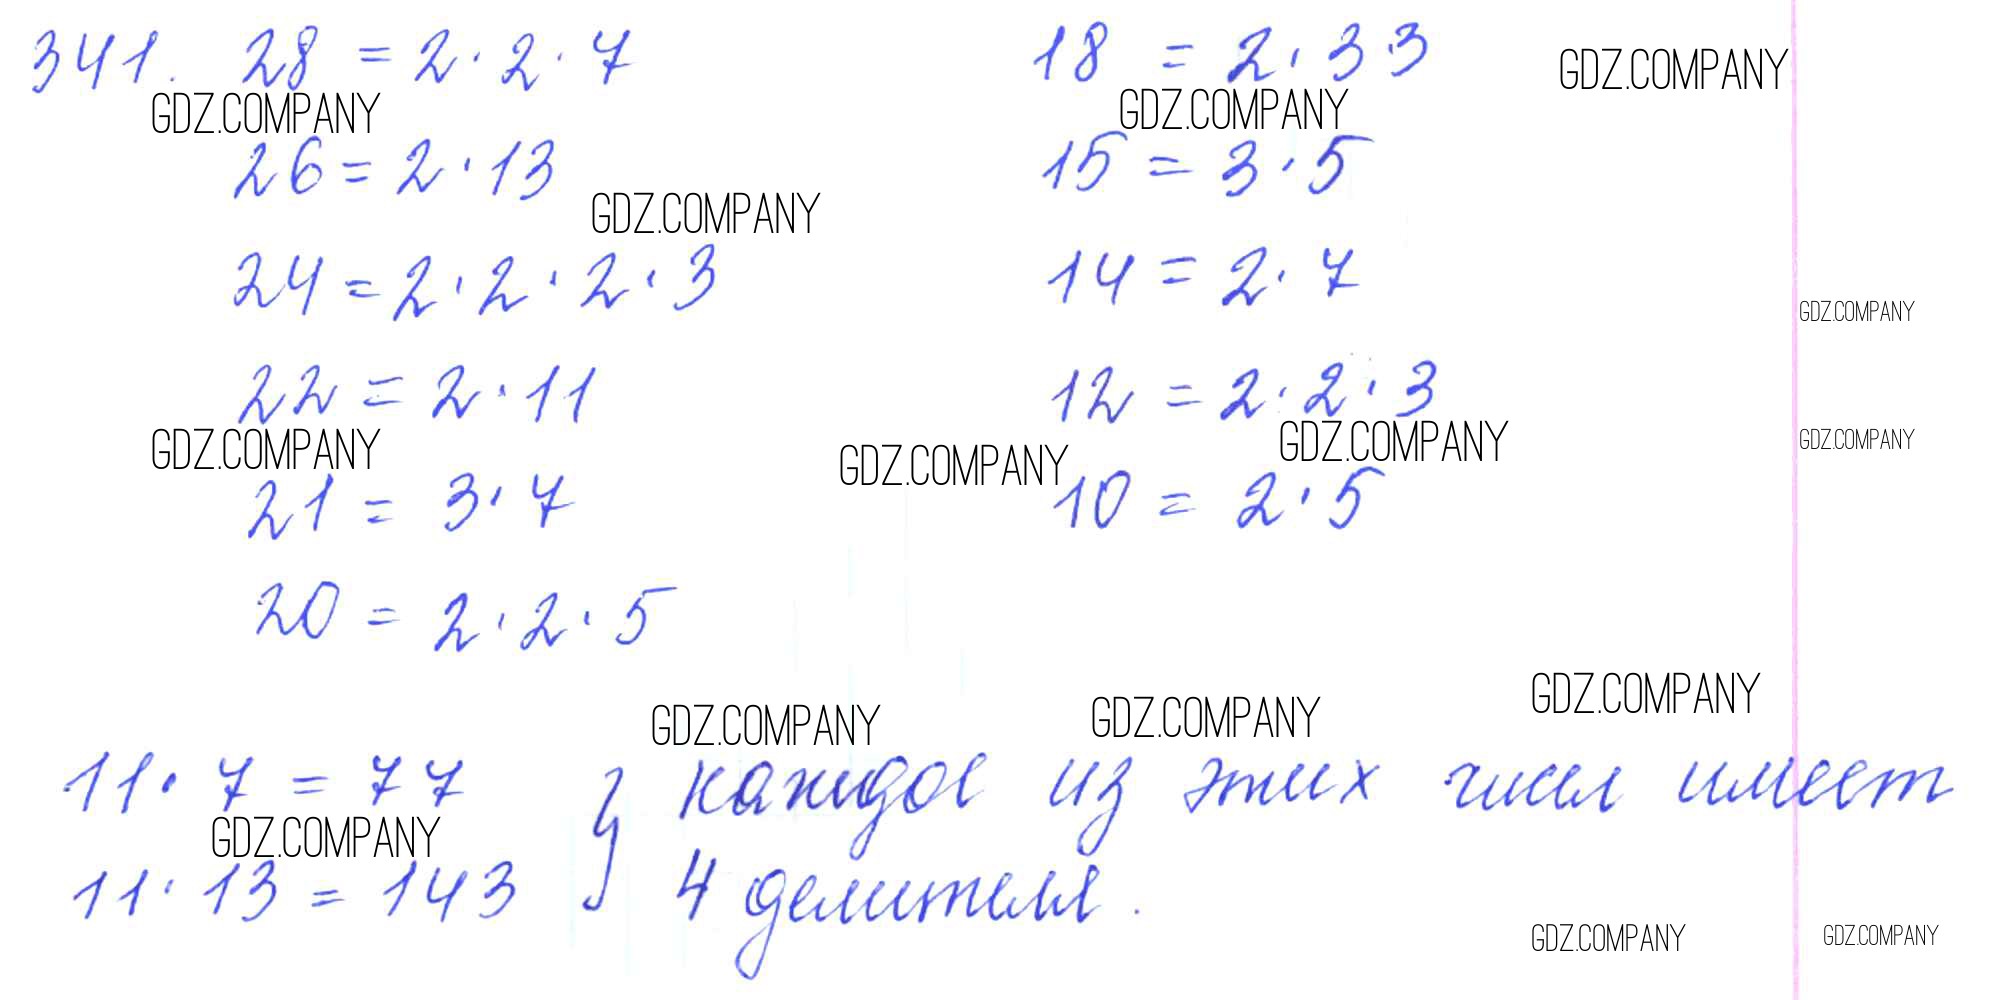 341. 28 = 2 · 2 · 7
18 = 2 · 3 · 3
GDZ.COMPANY
GDZ.COMPANY
GDZ.COMPANY
26 = 2 · 13
15 = 3 · 5
GDZ.COMPANY
24 = 2 · 2 · 2 · 3
14 = 2 · 7
GDZ.COMPANY
22 = 2 · 11
12 = 2 · 2 · 3
GDZ.COMPANY
GDZ.COMPANY
GDZ.COMPANY
GDZ.COMPANY
21 = 3 · 7
10 = 2 · 5
20 = 2 · 2 · 5
GDZ.COMPANY
GDZ.COMPANY
GDZ.COMPANY
11 · 7 = 77 } каждое из этих чисел имеет
GDZ.COMPANY
11 · 13 = 143 4 делителя.
GDZ.COMPANY
GDZ.COMPANY